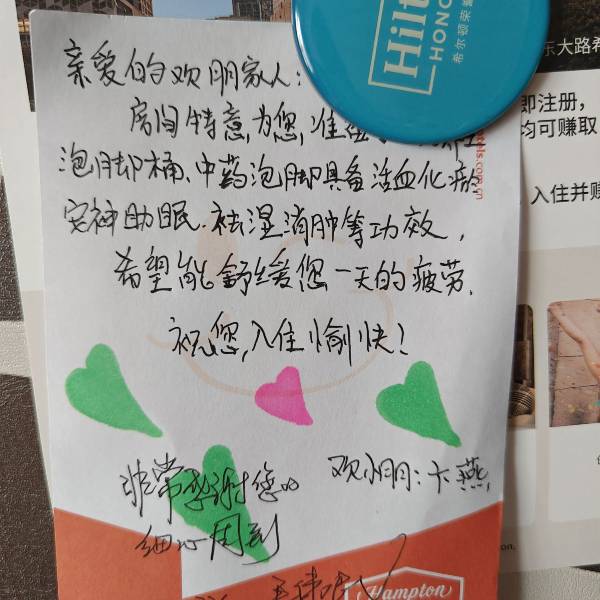 Hilton
HONO
希尔顿荣
东大路希
即注册，
均可赚取
入住并赚
els.com.cn
亲爱的欢朋家人：
房间特意为您，准
泡脚桶、中药泡脚具备活血化瘀，
安神助眠、祛湿消肿等功效，
希望能舒缓您一天的疲劳，
祝您，入住愉快！
欢小朋：卞燕，
非常感谢您的
细心周到
Hampton